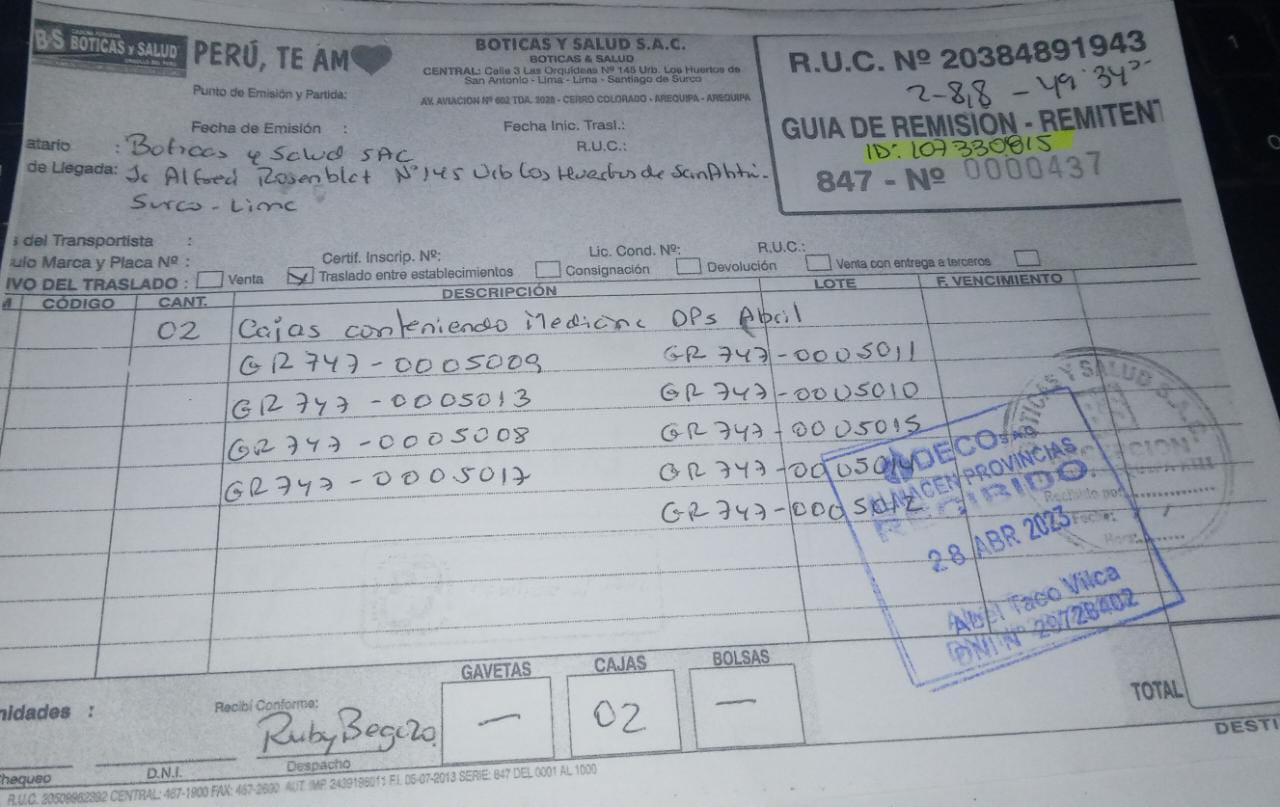 B·S BOTICAS Y SALUD
PERÚ, TE AM
BOTICAS Y SALUD S.A.C.
BOTICAS & SALUD
CENTRAL: Calle 3 Las Orquídeas Nº 145 Urb. Los Huertos de
San Antonio - Lima - Lima - Santiago de Surco
AV. AVIACION Nº 602 TDA. 2028 - CERRO COLORADO - AREQUIPA - AREQUIPA
R.U.C. Nº 20384891943
2-8,8 - 49'34
GUIA DE REMISIÓN - REMITENT
ID: 107330815
847 - Nº 0000437
Punto de Emisión y Partida:
Fecha de Emisión :
Fecha Inic. Trasl.:
atario : Boticas y Salud SAC
R.U.C.:
de Llegada: Jc Alfred Rosenblat Nº145 Urb Los Huertos de San Ant.
Surco - Lima
s del Transportista :
ulo Marca y Placa Nº :
Certif. Inscrip. Nº:
Lic. Cond. Nº:
R.U.C.:
IVO DEL TRASLADO : Venta Traslado entre establecimientos Consignación Devolución Venta con entrega a terceros
CÓDIGO CANT. DESCRIPCIÓN LOTE F. VENCIMIENTO
02 Cajas conteniendo Medicina DPs Abril
GR 747-0005009 GR 747-0005011
GR 747-0005013 GR 747-0005010
GR 747-0005008 GR 747-0005015
GR 747-0005017 GR 747-0005014
GR 747-0005012
BOTICAS Y SALUD S.A.C.
Recibido por:
Fecha:
Hora:
DECO SAC
ALMACEN PROVINCIAS
RECIBIDO
28 ABR 2023
Abel Taco Vilca
DNI Nº 29728402
GAVETAS CAJAS BOLSAS
— 02 —
TOTAL
nidades :
Recibí Conforme:
Ruby Begazo
Chequeo D.N.I. Despacho
DESTI
R.U.C. 20509962392 CENTRAL: 467-1900 FAX: 467-2690 AUT. IMP. 2439196011 F.I. 05-07-2013 SERIE: 847 DEL 0001 AL 1000